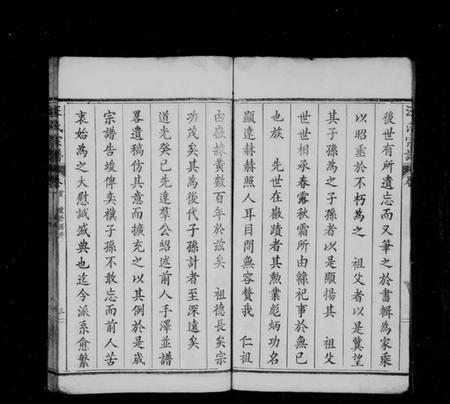 後世有所遺忘而又筆之於書輯為家乘
以昭垂於不朽為之　祖父者以是冀望
其子孫為之子孫者以是顯揚其　祖父
世世相承春露秋霜所由絲祀事於無已
也族　先世在嶽蹟者其勲業彪炳功名
顯達赫赫照人耳目間無容贅我　仁祖
由嶽遷黃數百年於兹矣　祖德長矣宗
功茂矣其為後代子孫計者至深遠矣
道光癸已先達羣公紹述前人手澤並譜
畧遺稿仿其意而擴充之以其例於是歲
宗譜告竣俾奕樸子孫不敢忘而前人苦
衷始為之大慰誠盛典也迄今派系愈繁
氏宗譜
卷首
三